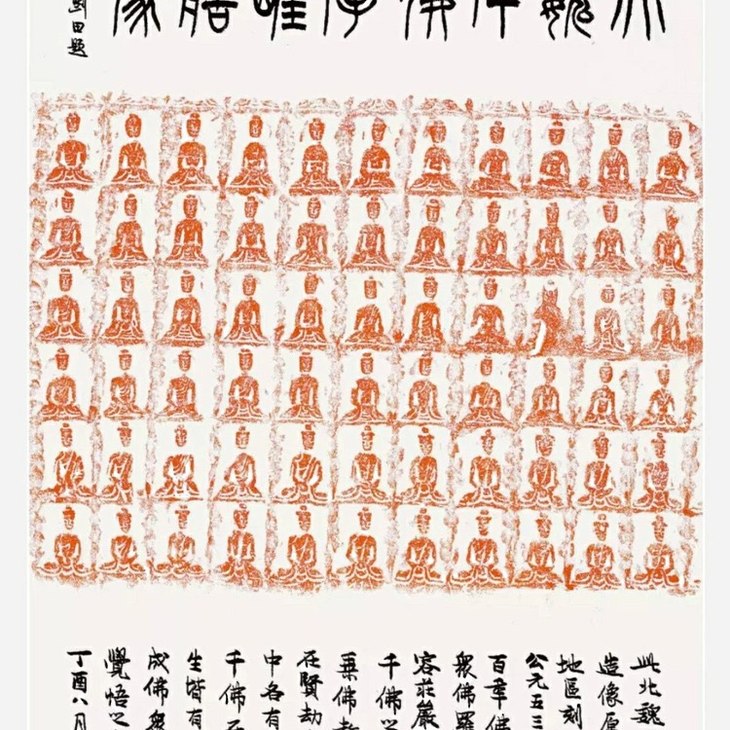 北魏千佛像
田題
此北魏
造像原
地區刻
公元五三
百佛
眾佛羅
容莊嚴
千佛之
乘佛教
在賢劫
中各有
千佛
生皆有
成佛眾
覺悟之
丁酉八月